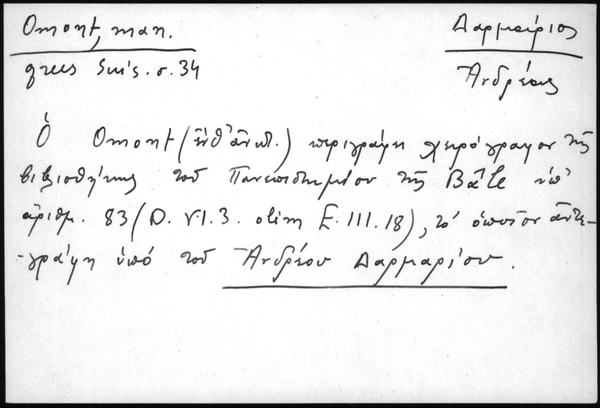 Omont, man.
Δαρμάριος
grecs Suis. σ. 34
Ἀνδρέας
Ὁ Omont (ἐνθ' ἀνωτ.) περιγράφει χειρόγραφον τῆς
βιβλιοθήκης τοῦ Πανεπιστημίου τῆς Bâle ὑπ'
ἀριθμ. 83 (D. VI. 3. olim E. III. 18), τὸ ὁποῖον ἀντε-
-γράφη ὑπό τοῦ Ἀνδρέου Δαρμαρίου.